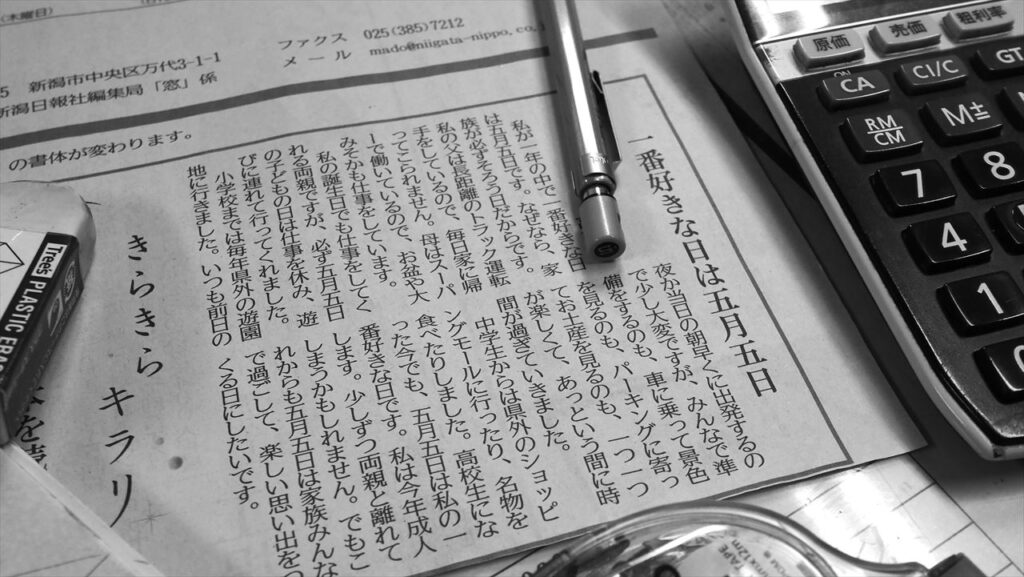 （木曜日）
ファクス 025(385)7212
メール mado@niigata-nippo.co.
5 新潟市中央区万代3-1-1
新潟日報社編集局「窓」係
の書体が変わります。
一番好きな日は五月五日
私が一年の中で一番好きな日
は五月五日です。なぜなら、家
族が必ずそろう日だからです。
私の父は長距離のトラック運転
手をしているので、毎日家に帰
ってこられません。母はスーパ
ーで働いているので、お盆や大
みそかも仕事をしています。
私の誕生日でも仕事をしてく
れる両親ですが、必ず五月五日
の子どもの日は仕事を休み、遊
びに連れて行ってくれました。
小学校までは毎年県外の遊園
地に行きました。いつも前日の
夜か当日の朝早くに出発するの
で少し大変ですが、みんなで準
備をするのも、車に乗って景色
を見るのも、パーキングに寄っ
てお土産を見るのも、一つ一つ
が楽しくて、あっという間に時
間が過ぎていきました。
中学生からは県外のショッピ
ングモールに行ったり、名物を
食べたりしました。高校生にな
った今でも、五月五日は私の一
番好きな日です。私は今年成人
します。少しずつ両親と離れて
しまうかもしれません。でもこ
れからも五月五日は家族みんな
で過ごして、楽しい思い出をつ
くる日にしたいです。
きらきら キラリ
Trees PLASTIC ERA
原価 売価 粗利率
ON
CA C1/C GT
RM CM M±
7 8
4
1
0